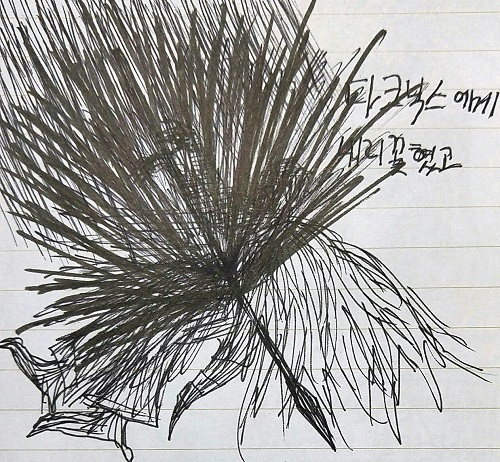 다크닉스에게
내리꽂혔고